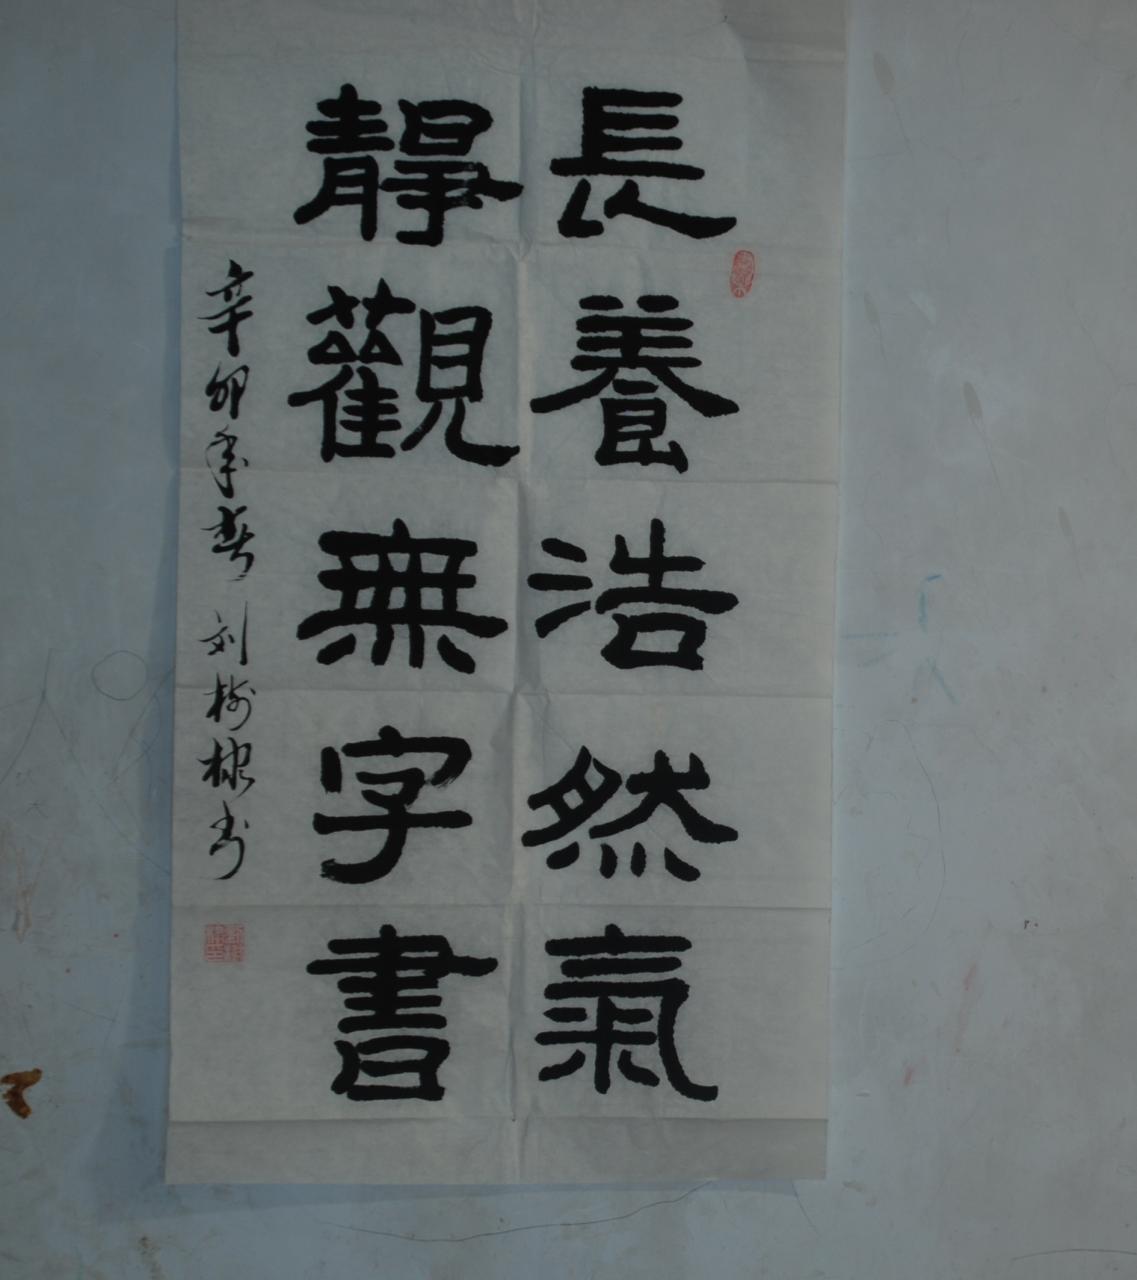 長養浩然氣
靜觀無字書
辛卯年春 刘樹棣书